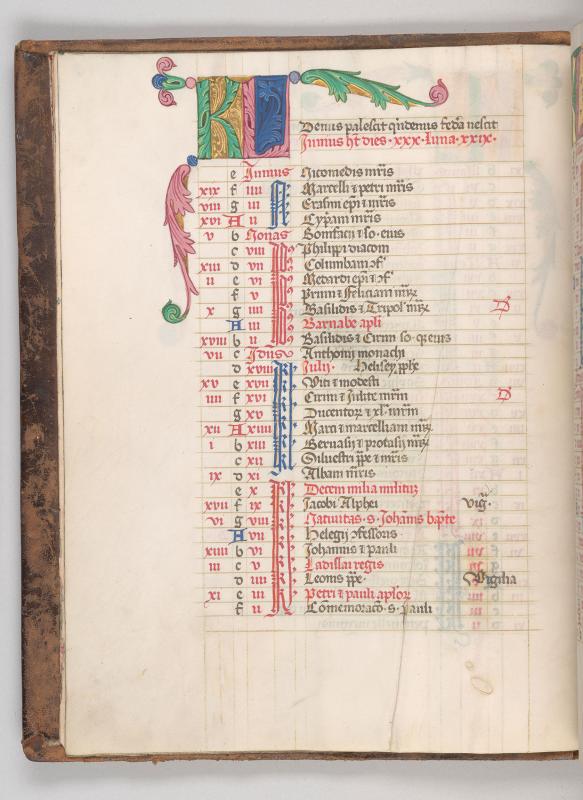 KL
Denus palescit quindenus federa nescit
Junius ht dies · xxx · Luna · xxix ·
e Junius Nicomedis mris
xix f iiii N Marcelli et petri mris
viii g iii Erasmi epi et mris
xvi A ii
v b Nonas Bonifacii et so · eius
c viii Philippi diaconi
xiii d vii Columbani
ii e vi Medardi epi et
f v Primi et feliciani
x g iiii Basilidis et Tripol D
A iii Barnabe apli
xviii b ii Basilidis et Cirini so ·
vii c Idus Anthonij monachi
d xviii Kl Julij · Helisey pphe
xv e xvii Viti et modesti
iiii f xvi Cirini et Julite mrm D
g xv
xii A xiiii Marci et marcelliani
i b xiii Geruasij et protasij
c xii Siluestri pp et mris
ix d xi Albani mris
e x Decem milia militum
xvii f ix Jacobi Alphei vig
vi g viii Natiuitas · s · Johannis bapte
A vii
xiiii b vi Johannis et pauli
iii c v Ladislai regis
d iiii Leonis pp · Vigilia
xi e iii Petri et pauli aplor
f ii Comemoraco · s · pauli